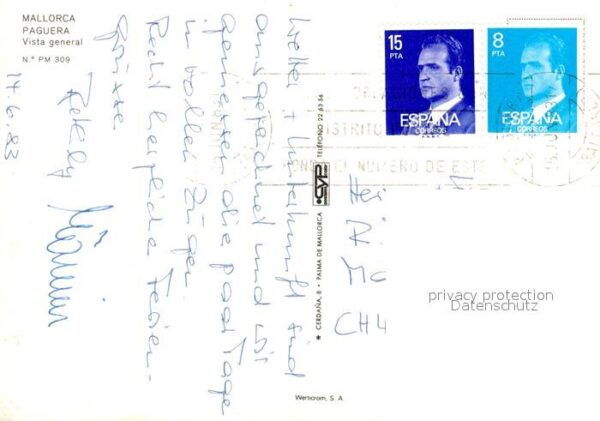 MALLORCA
PAGUERA
Vista general
N.º PM 309
Wetter + Unterkunft sind
ausgezeichnet und wir
geniessen die paar Tage
in vollen Zügen.
Recht herzliche Ferien-
grüsse
14.6.83
15
PTA
ESPAÑA
CORREOS
8
PTA
ESPAÑA
CORREOS
DISTRITO
NUMERO DE ESTE
CYP
* CERDAÑA, 8 • PALMA DE MALLORCA
TELEFONO 22 63 56
CH 4
privacy protection
Datenschutz
Werticrom, S. A.